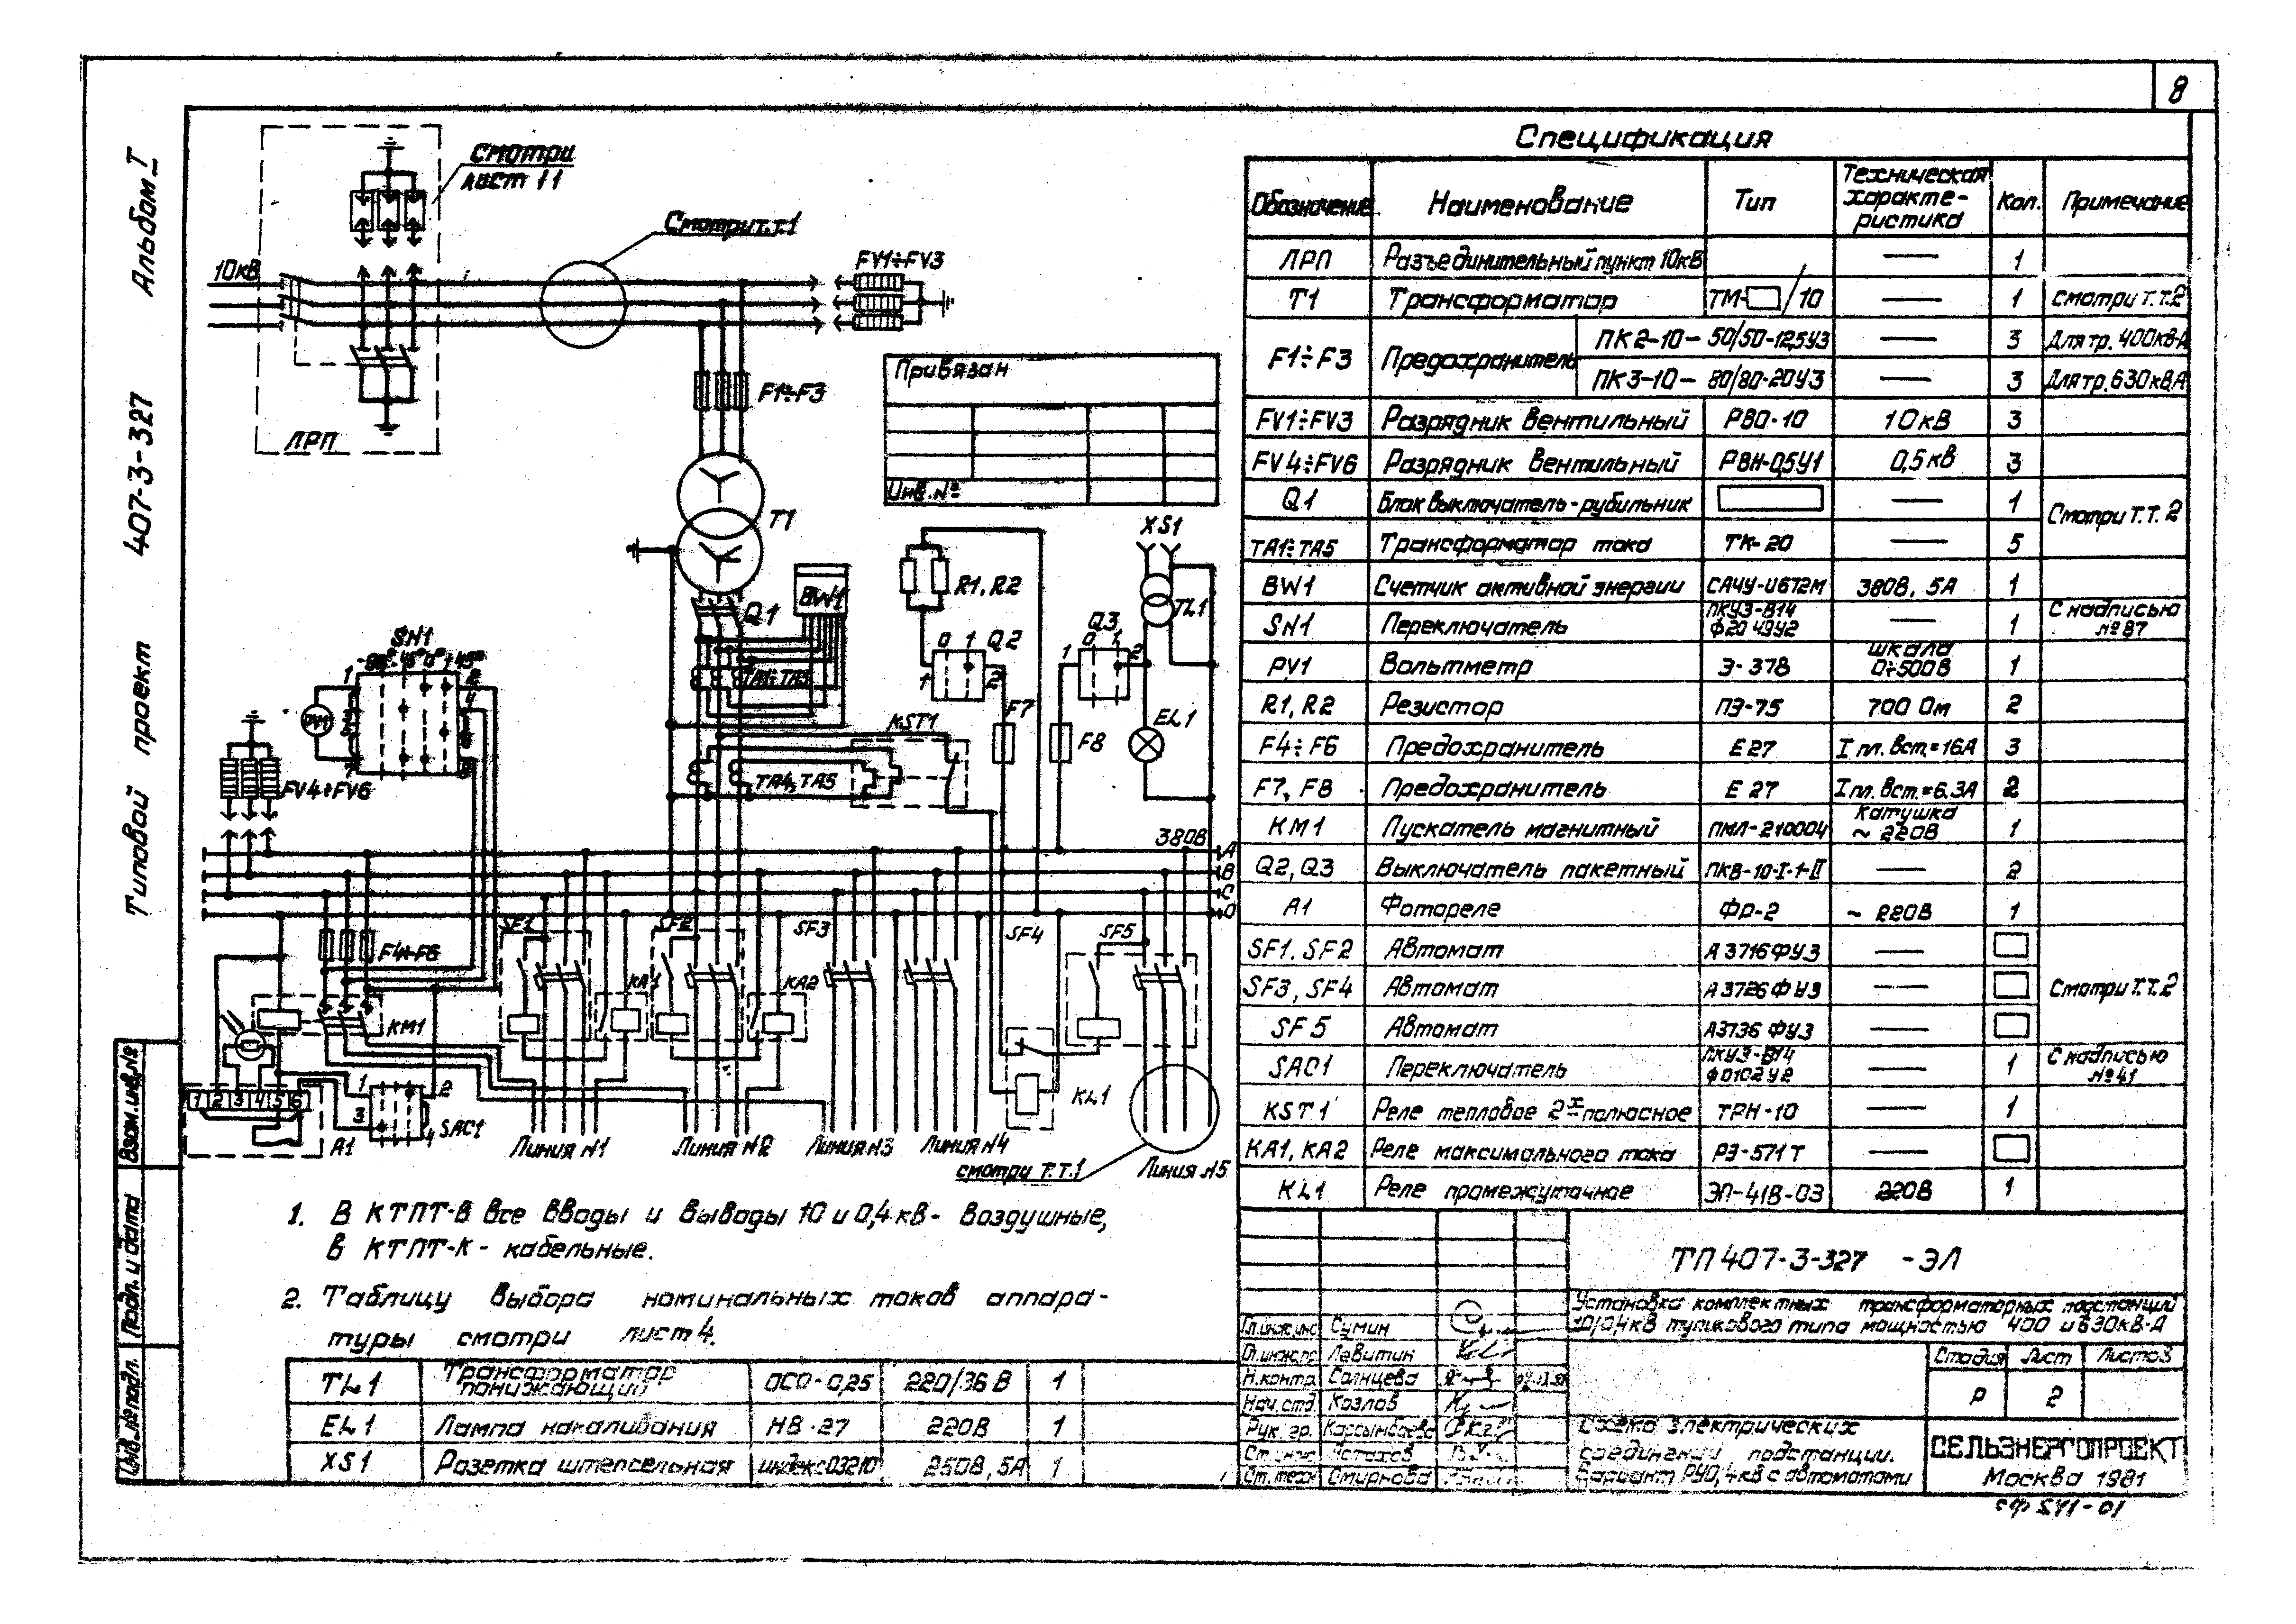 8
Альбом I
Типовой проект 407-3-327
Смотри
лист 11
Смотри т.т.1
10кВ
FV1÷FV3
ЛРП
F1÷F3
Привязан
Инв.№
T1
XS1
R1, R2
TL1
BW1
Q1
Q3
0 1
1 2
0 1 Q2
1 2
SN1
1 2
4
PV1
TA1÷TA3
F7
KST1
F8
EL1
FV4÷FV6
TA4, TA5
380В
A
B
C
0
SF1
SF2
SF3
SF4
SF5
F4÷F6
KA1
KA2
KM1
1 2
3 4
SAC1
1 2 3 4 5 6
A1
KL1
Линия N1
Линия N2
Линия N3
Линия N4
Линия N5
смотри т.т.1
1. В КТПТ-В все вводы и выводы 10 и 0,4 кв- воздушные,
в КТПТ-К - кабельные.
2. Таблицу выбора номинальных токов аппара-
туры смотри лист 4.
TL1 Трансформатор понижающий ОСО-0,25 220/36 В 1
EL1 Лампа накаливания НВ-27 220В 1
XS1 Розетка штепсельная индекс 03210 250В, 5А 1
Спецификация
Обозначение Наименование Тип Техническая характеристика Кол. Примечание
ЛРП Разъединительный пункт 10кВ — 1
T1 Трансформатор ТМ-□/10 — 1 смотри т.т.2
F1÷F3 Предохранитель ПК2-10-50/50-12,5У3 — 3 Для тр. 400кв·А
ПК3-10-80/80-20У3 — 3 Для тр. 630кв·А
FV1÷FV3 Разрядник вентильный РВО-10 10кВ 3
FV4÷FV6 Разрядник вентильный РВН-0,5У1 0,5кв 3
Q1 Блок выключатель-рубильник — 1 Смотри т.т. 2
TA1÷TA5 Трансформатор тока ТК-20 — 5
BW1 Счетчик активной энергии САЧУ-И672М 380В, 5А 1
SN1 Переключатель ПКУ3-В14 Ф2049У2 — 1 С надписью №87
PV1 Вольтметр Э-378 шкала 0÷500В 1
R1, R2 Резистор ПЭ-75 700 Ом 2
F4÷F6 Предохранитель Е27 I пл. вст.=16А 3
F7, F8 Предохранитель Е 27 I пл. вст.=6.3А 2
KM1 Пускатель магнитный ПМЛ-210004 Катушка ~ 220В 1
Q2, Q3 Выключатель пакетный ПКВ-10-I-1-II — 2
A1 Фотореле ФР-2 ~ 220В 1
SF1. SF2 Автомат А3716ФУ3 — □
SF3, SF4 Автомат А3726ФУ3 — □ Смотри т.т.2
SF5 Автомат А3736ФУ3 — □
SAC1 Переключатель ПКУ3-В14 Ф0102У2 — 1 С надписью №41
KST1 Реле тепловое 2х полюсное ТРН-10 — 1
KA1, KA2 Реле максимального тока РЭ-571Т — □
KL1 Реле промежуточное ЭП-41В-03 220В 1
ТП 407-3-327 -ЭЛ
Установка комплектных трансформаторных подстанций
10/0,4кВ тупикового типа мощностью 400 и 630кв·А
Сумин
Левитин
Н.контр. Солнцева
Нач.отд. Козлов
Рук. гр.
Ст. техн. Смирнова
Стадия Лист Листов
Р 2
Схема электрических
соединений подстанции.
Вариант РУ0,4кв с автоматами
СЕЛЬЭНЕРГОПРОЕКТ
Москва 1981
сф 541-01
Взам.инв.№
Подп. и дата
Инв.№подл.